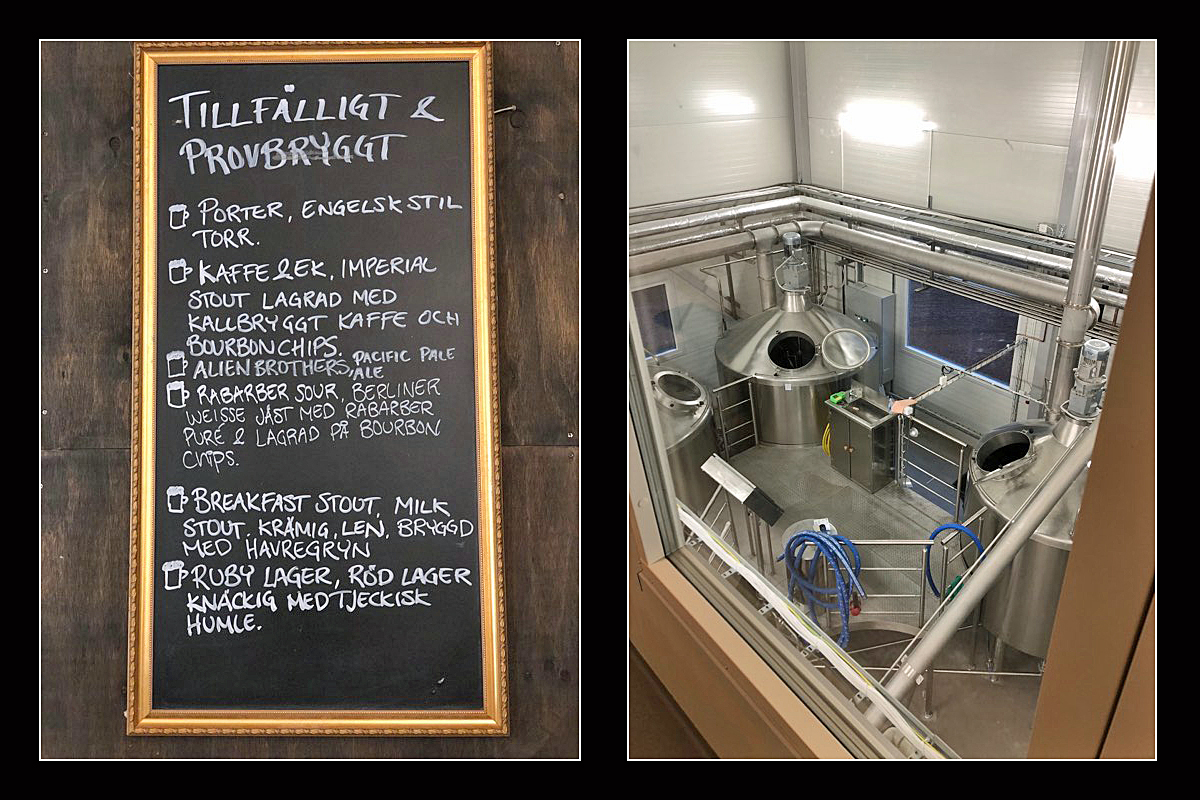 TILLFÄLLIGT &
PROVBRYGGT
PORTER, ENGELSK STIL
TORR.
KAFFE & EK, IMPERIAL
STOUT LAGRAD MED
KALLBRYGGT KAFFE OCH
BOURBONCHIPS.
ALIEN BROTHERS, PACIFIC PALE
ALE
RABARBER SOUR, BERLINER
WEISSE JÄST MED RABARBER
PURÉ & LAGRAD PÅ BOURBON
CHIPS.
BREAKFAST STOUT, MILK
STOUT. KRÄMIG, LEN, BRYGGD
MED HAVREGRYN
RUBY LAGER, RÖD LAGER
KNÄCKIG MED TJECKISK
HUMLE.